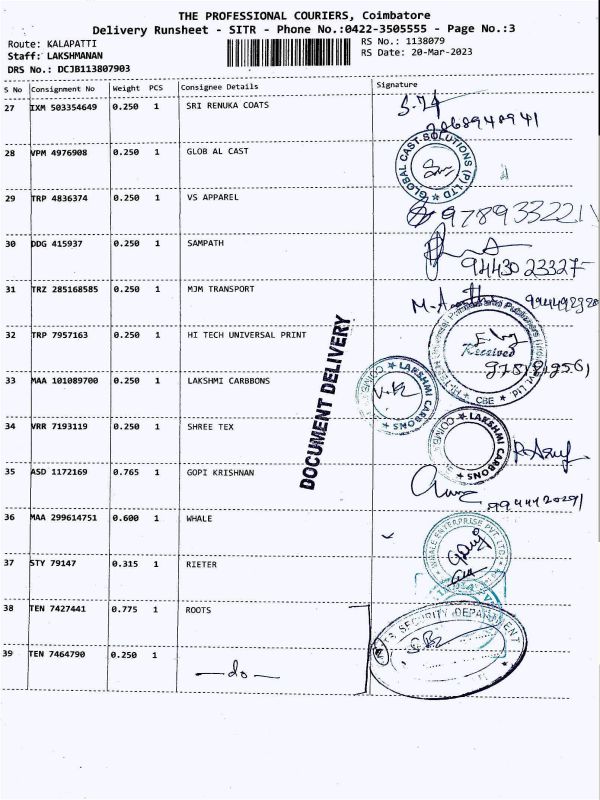 THE PROFESSIONAL COURIERS, Coimbatore
Delivery Runsheet - SITR - Phone No.:0422-3505555 - Page No.:3
Route: KALAPATTI
RS No.: 1138079
Staff: LAKSHMANAN
RS Date: 20-Mar-2023
DRS No.: DCJB113807903
S No Consignment No Weight PCS Consignee Details Signature
27 IXM 503354649 0.250 1 SRI RENUKA COATS
28 VPM 4976908 0.250 1 GLOB AL CAST
GLOBAL CAST SOLUTIONS (P) LTD
29 TRP 4836374 0.250 1 VS APPAREL
30 DDG 415937 0.250 1 SAMPATH
9443023327
31 TRZ 285168585 0.250 1 MJM TRANSPORT
32 TRP 7957163 0.250 1 HI TECH UNIVERSAL PRINT
Received
CBE
DOCUMENT DELIVERY
33 MAA 101089700 0.250 1 LAKSHMI CARBBONS
LAKSHMI CARBONS
34 VRR 7193119 0.250 1 SHREE TEX
LAKSHMI CARBONS
35 ASD 1172169 0.765 1 GOPI KRISHNAN
36 MAA 299614751 0.600 1 WHALE
WHALE ENTERPRISE PVT. LTD.
37 STY 79147 0.315 1 RIETER
38 TEN 7427441 0.775 1 ROOTS
SECURITY DEPARTMENT
39 TEN 7464790 0.250 1 — do —